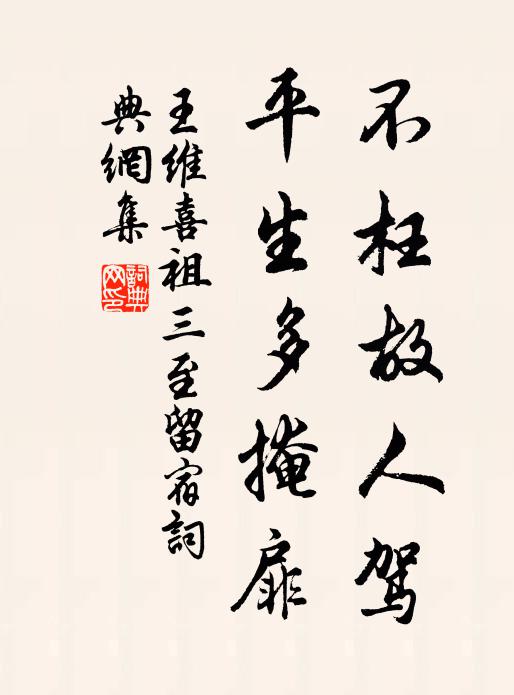 不枉故人駕
平生多掩扉
王維喜祖三至留宿詞
典網集
詞典
网印